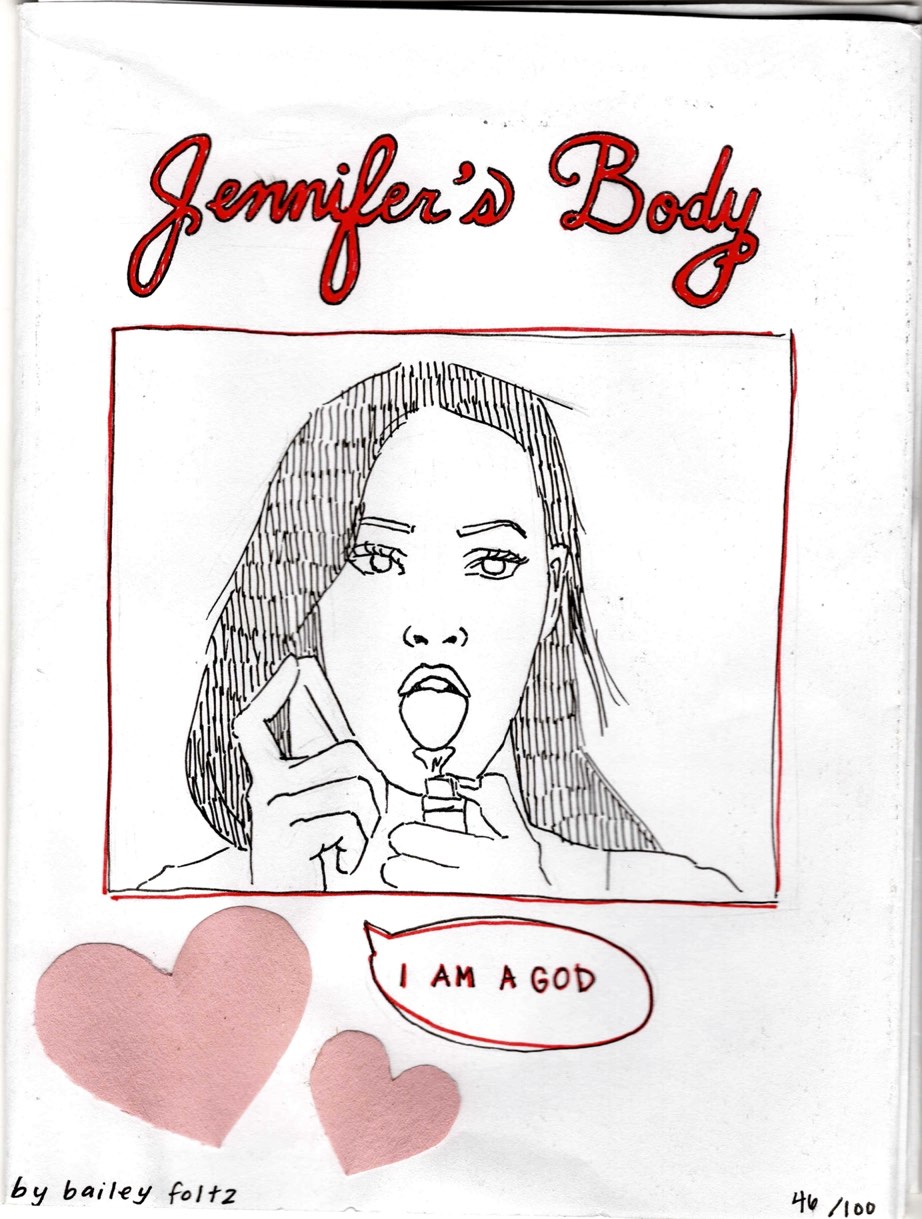 Jennifer's Body
I AM A GOD
by bailey foltz
46/100